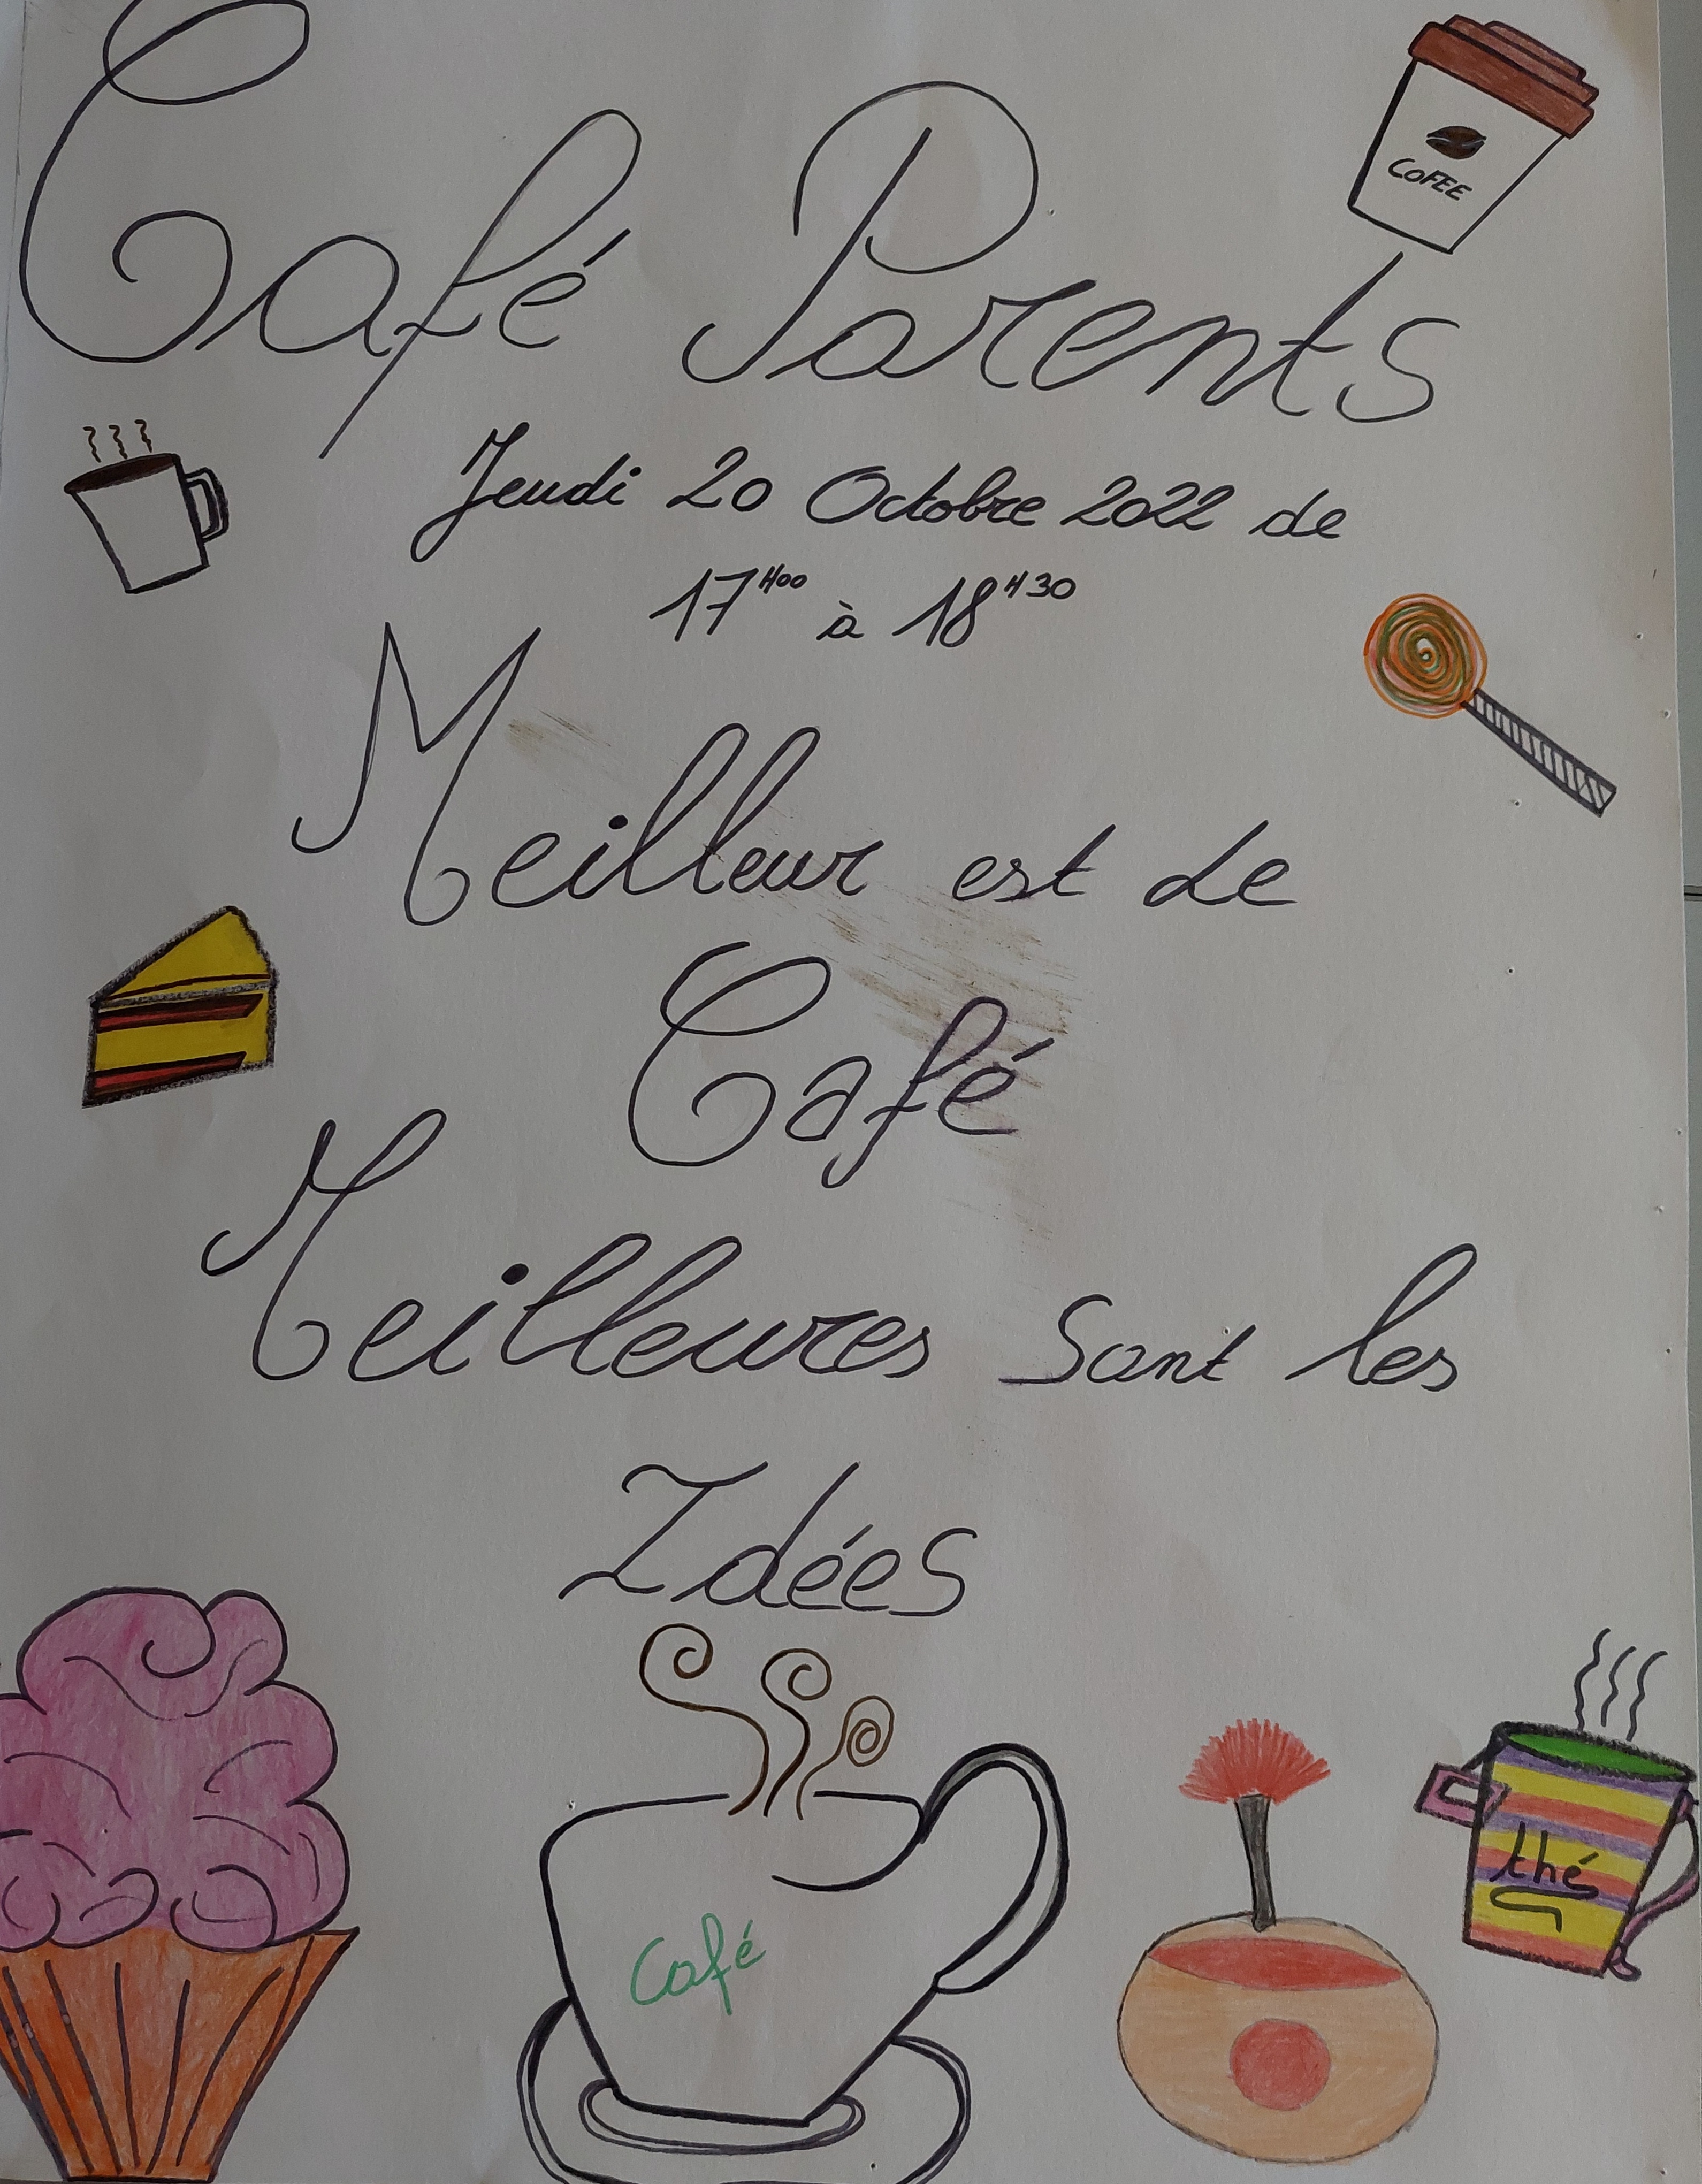 COFEE
Café Parents
Jeudi 20 Octobre 2022 de
17H00 à 18H30
Meilleur est Le
Café
Meilleures Sont les
Idées
Café
thé